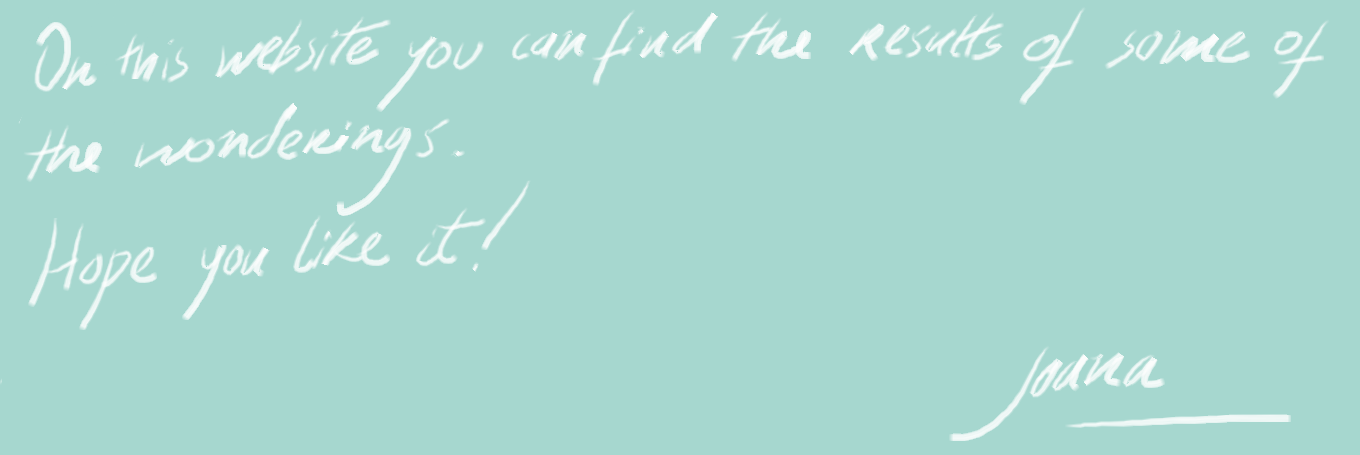 On this website you can find the results of some of
the wonderings.
Hope you like it!
Joana